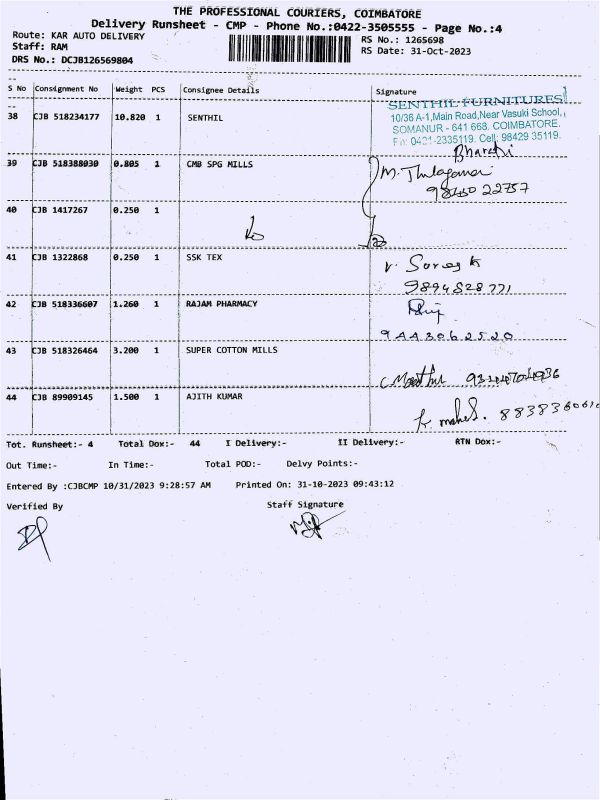 THE PROFESSIONAL COURIERS, COIMBATORE
Delivery Runsheet - CMP - Phone No.:0422-3505555 - Page No.:4
Route: KAR AUTO DELIVERY
RS No.: 1265698
Staff: RAM
RS Date: 31-Oct-2023
DRS No.: DCJB126569804
S No Consignment No Weight PCS Consignee Details Signature
38 CJB 518234177 10.820 1 SENTHIL
SENTHIL FURNITURES
10/36 A-1,Main Road,Near Vasuki School,
SOMANUR - 641 668. COIMBATORE.
0421-2335119. Cell: 98429 35119.
Bharathi
39 CJB 518388030 0.805 1 CMB SPG MILLS
40 CJB 1417267 0.250 1
41 CJB 1322868 0.250 1 SSK TEX
9894828771
42 CJB 518336607 1.260 1 RAJAM PHARMACY
9443062520
43 CJB 518326464 3.200 1 SUPER COTTON MILLS
44 CJB 89909145 1.500 1 AJITH KUMAR
Tot. Runsheet:- 4 Total Dox:- 44 I Delivery:- II Delivery:- RTN Dox:-
Out Time:- In Time:- Total POD:- Delvy Points:-
Entered By :CJBCMP 10/31/2023 9:28:57 AM Printed On: 31-10-2023 09:43:12
Verified By Staff Signature